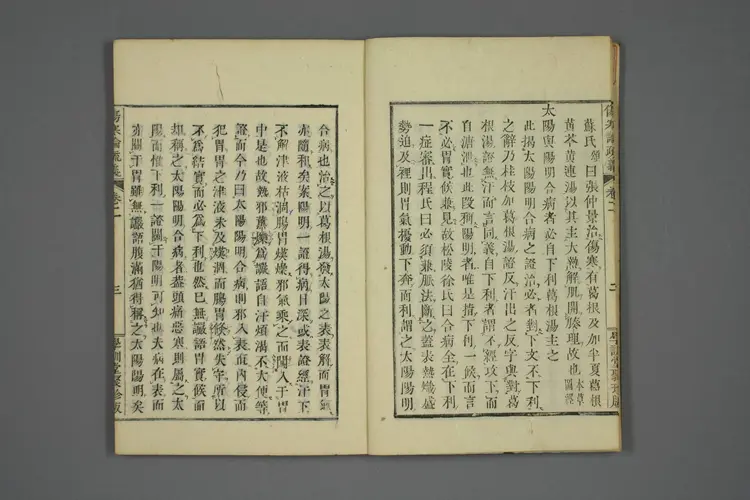 蘇氏頌曰張仲景治傷寒有葛根及加半夏葛根
黃芩黃連湯以其主大熱解肌開腠理故也本草圖經
太陽與陽明合病者必自下利葛根湯主之
此揭太陽陽明合病之證治必者對下文不下利
之辭乃桂枝加葛根湯證反汗出之反字與對葛
根湯證無汗而言同義自下利者謂不經攻下而
自溏泄也此段殊陽明者唯是揞下利一候而言
不必胃實候兼見故松陵徐氏曰合病全在下利
一症審出程氏曰必須兼脈法斷之蓋表熱熾盛
勢迫及裡則胃氣擾動下奔而利謂之太陽陽明
傷寒論疏義 卷二 三
合病也治之以葛根湯發太陽之表表解而胃氣
亦隨和矣案陽明一證得病日深或表證經汗下
不解津液枯凋腸胃燥燥邪氣乘之而闖入于胃
中是也故熱邪薰為讝語自汗煩渴不大便等
證而今乃曰太陽陽明合病則邪入表而內侵而
犯胃胃之津液未及燥凋而腸胃倏然失守所以
不為結實而必為下利也然已無讝語胃實候而
却稱之太陽陽明合病者盡頭痛惡寒則屬之太
陽而惟下利一證關于陽明可知也夫病在表而
亦關于胃雖無讝語腹滿猶得稱之太陽陽明矣